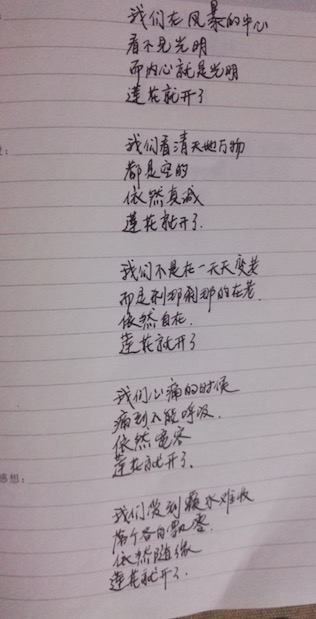 我们在风暴的中心
看不见光明
而内心就是光明
莲花就开了
我们看清天地万物
都是空的
依然真诚
莲花就开了.
我们不是在一天天变老
而是刹那刹那的在老.
依然自在.
莲花就开了
我们心痛的时候
痛到不能呼吸.
依然宽容
莲花就开了.
感想:
我们做到覆水难收
两个各自飘零.
依然随缘
莲花就开了.